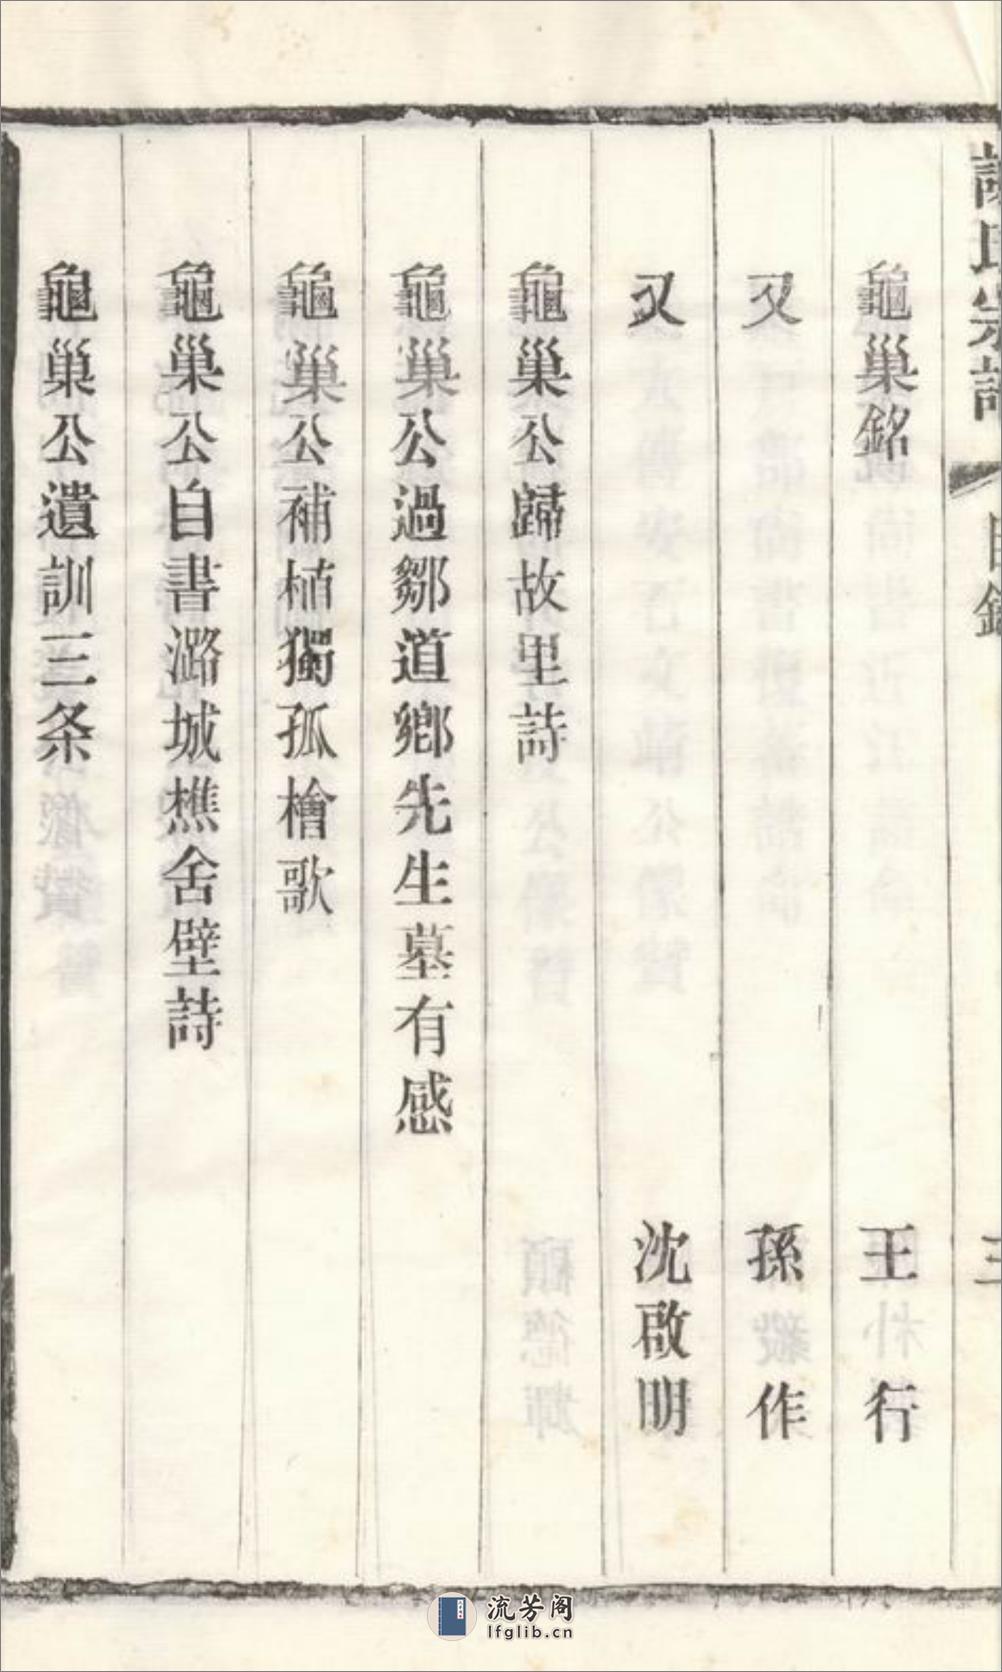 謝氏宗譜 目錄 三
龜巢銘 王行
又 孫作
又 沈啟明
龜巢公歸故里詩
龜巢公過鄒道鄉先生墓有感
龜巢公補植獨孤檜歌
龜巢公自書潞城樵舍壁詩
龜巢公遺訓三条
流芳阁
lfglib.cn